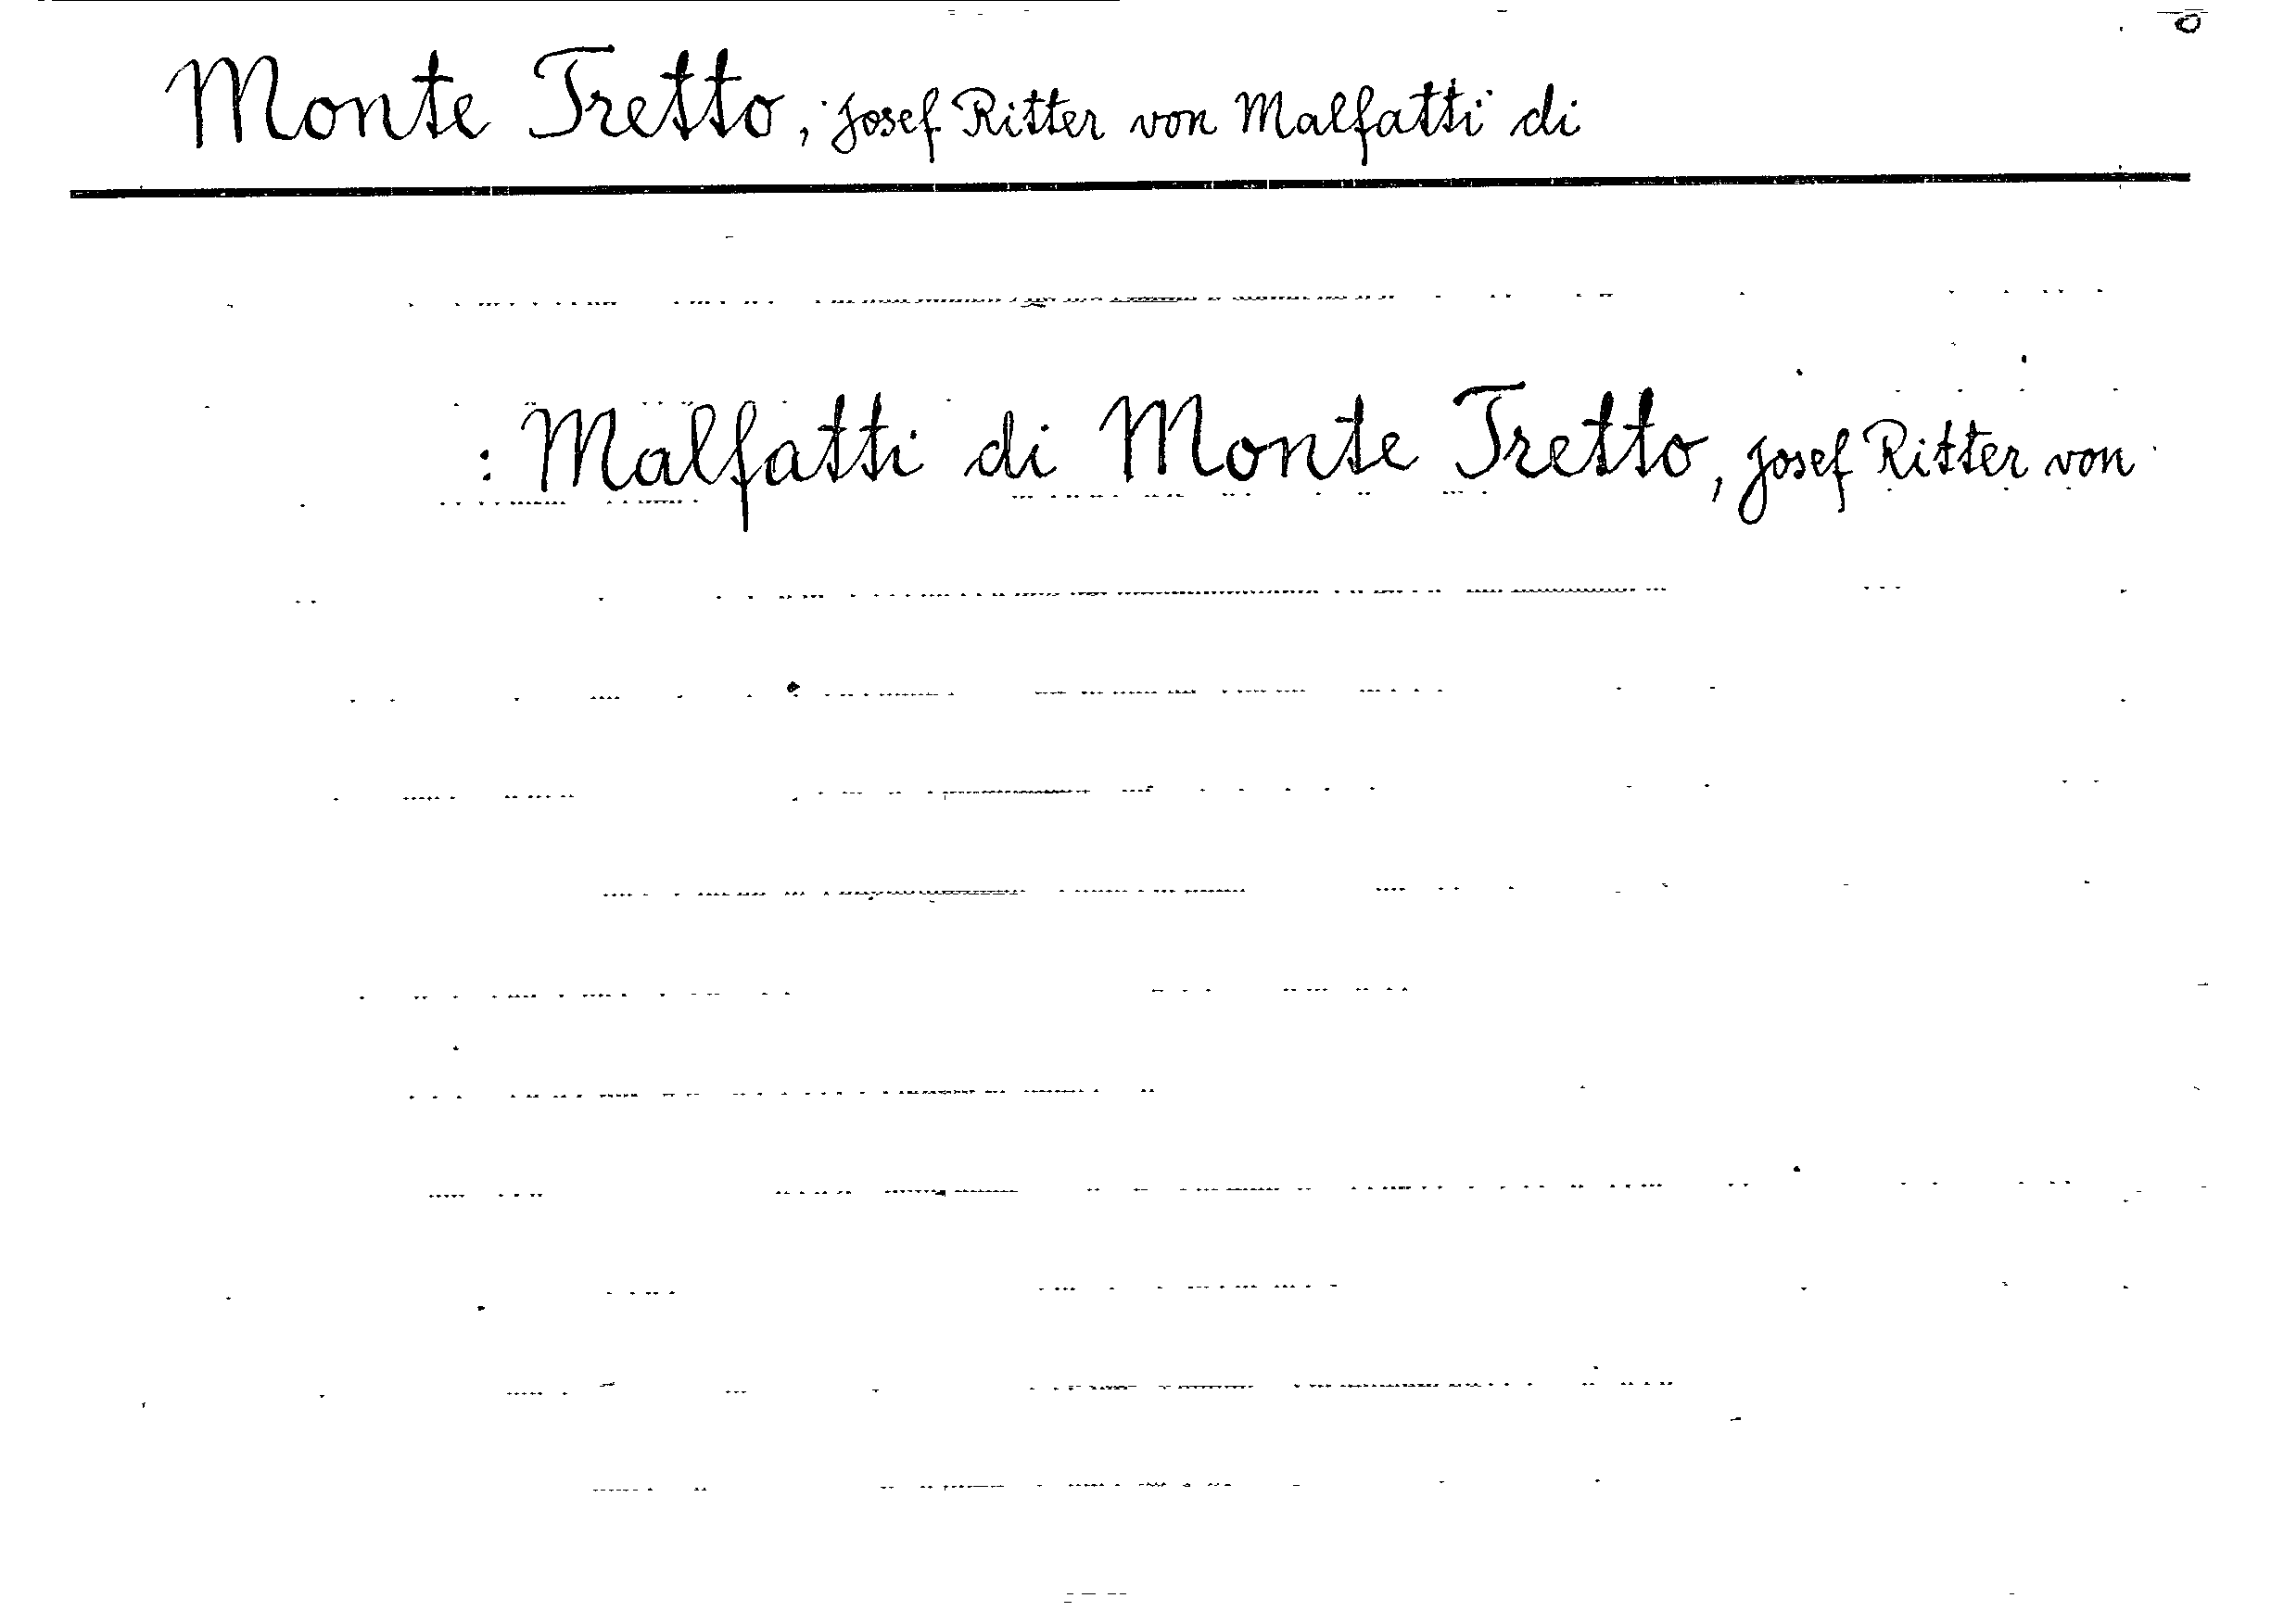 Monte Tretto, Josef Ritter von Malfatti di
: Malfatti di Monte Tretto, Josef Ritter von